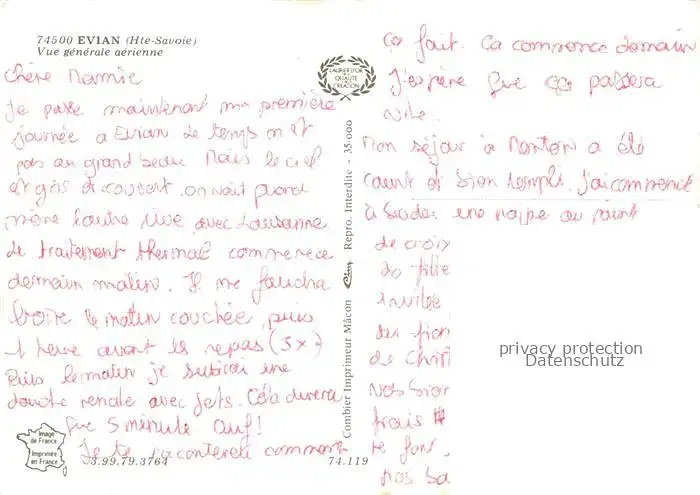 74500 EVIAN (Hte-Savoie)
Vue générale aérienne
LAURIER D'OR DE LA QUALITÉ DE CRÉATION
chère Mamie
Je passe maintenant ma première
journée à Evian Le temps n'et
pas au grand beau Mais le ciel
et gris et couvert. on voit quand
même l'autre rive avec Lausanne
Le traitement thermal commence
demain matin. Il me faudra
boire le matin couchée, puis
1 heure avant les repas (3x)
Puis le matin je subirai une
douche renale avec jets. Cela durera
que 5 minute ouf!
Je te raconterai comment
Image de France
Imprimée en France
3.99.79.3764
74.119
Combier Imprimeur Mâcon
Repro. Interdite - 35.000
ça fait. ça commence demain
J'espère que ça passera
vite.
Mon séjour à Menton a été
court et bien rempli. J'ai commencé
à broder une nappe au point
de croix
de fille
invitée
des
de
Nos
frais
te
nos
privacy protection
Datenschutz